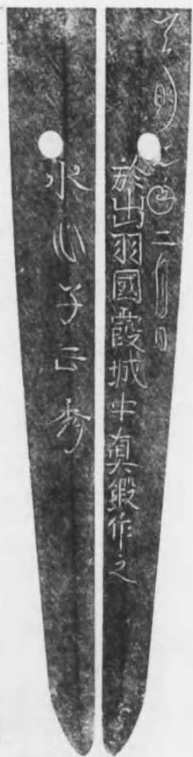 天明 二月日
於出羽國霞城中真鍛作之
水心子正秀